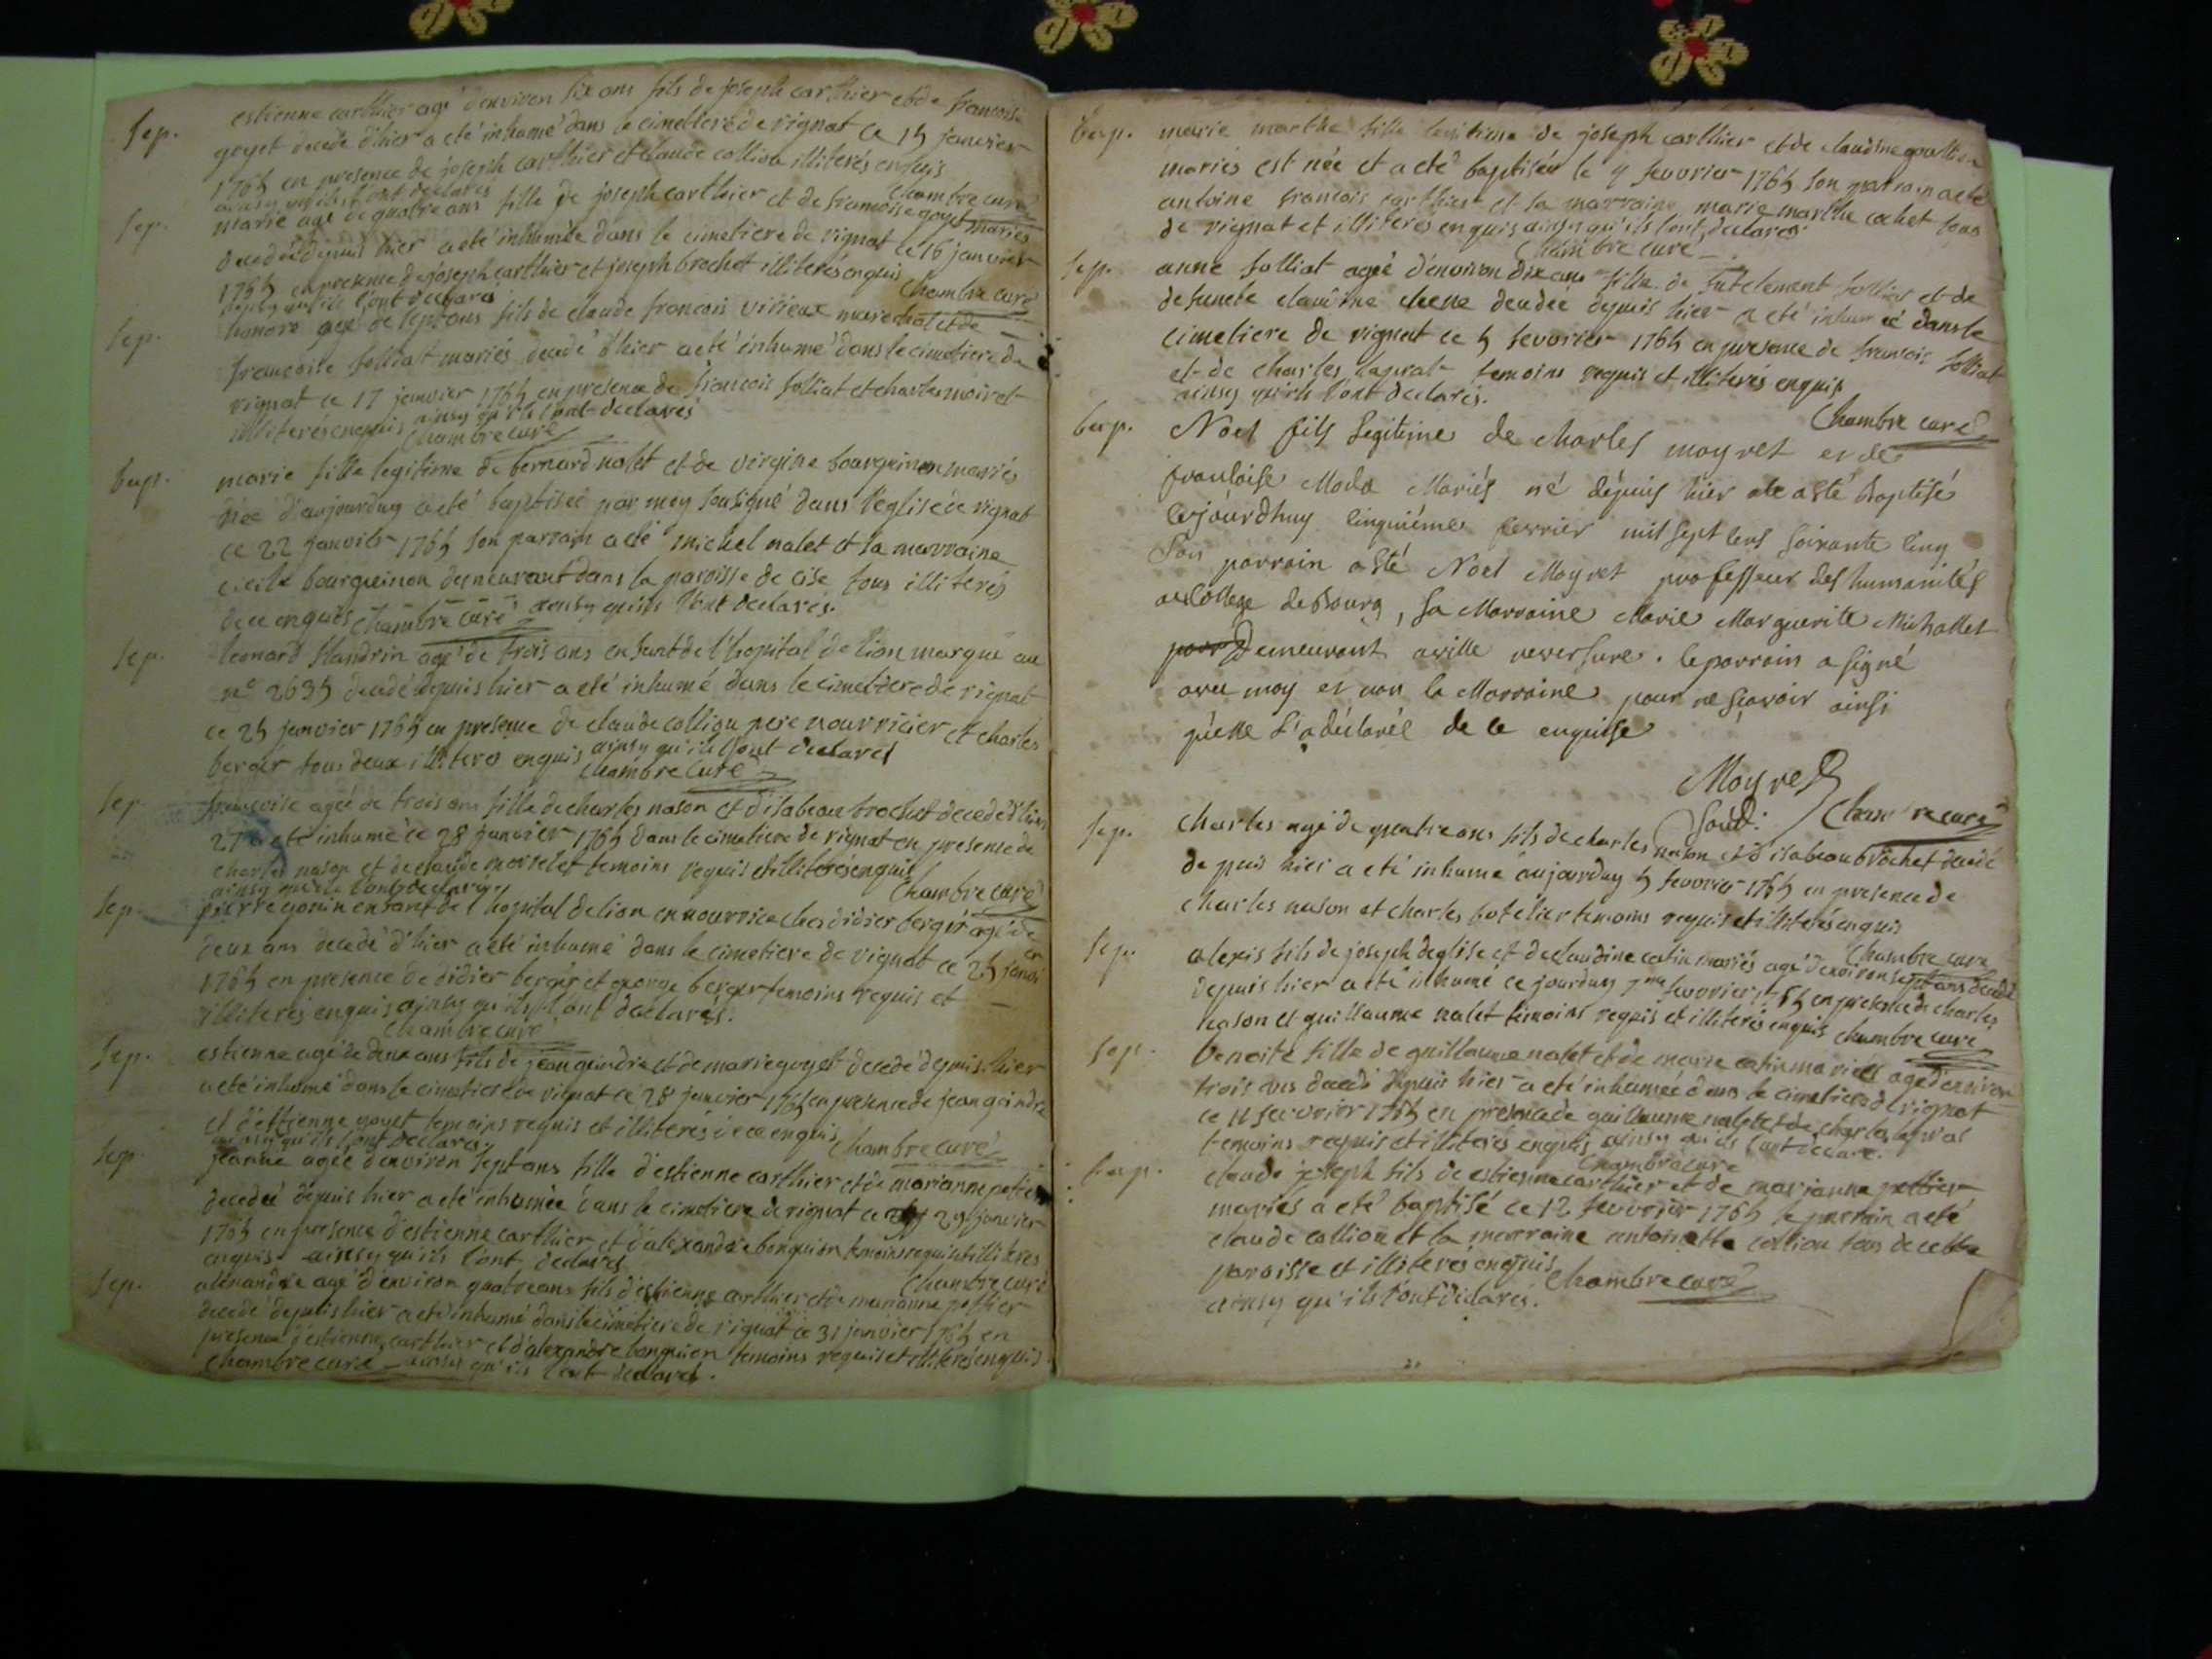 Sep. estienne carthier agé d'environ six ans fils de joseph carthier et de francoise
goyet decedé d'hier a eté inhumé dans le cimetiere de rignat ce 15 janvier
1765 en presence de joseph carthier et claude collion illiterés enquis
ainsy qu'ils l'ont declarés Chambre curé
Sep. marie agé de quatre ans fille de joseph carthier et de francoise goyet mariés
decedée depuis hier a eté inhumée dans le cimetiere de rignat ce 16 janvier
1765 en presence de joseph carthier et joseph brochet illiterés enquis
ainsy qu'ils l'ont declarés Chambre curé
Sep. honoré agé de sept ans fils de claude francois virieux marechal et de
francoise solliat mariés decedé d'hier a eté inhumé dans le cimetiere de
rignat ce 17 janvier 1765 en presence de francois solliat et charles moiret
illiterés enquis ainsy qu'ils l'ont declarés
Chambre curé
bap. marie fille legitime de bernard nalet et de virgine bourguinon mariés
née d'aujourduy a eté baptisée par moy sousigné dans l'eglise de rignat
ce 22 janvier 1765 son parrain a eté michel nalet et la marraine
cecile bourguinon demeurant dans la paroisse de cise tous illiterés
de ce enquis Chambre curé ainsy qu'ils l'ont declarés.
Sep. leonard flandrin agé de trois ans enfant de l'hopital de lion marqué au
n° 2635 decedé depuis hier a eté inhumé dans le cimetiere de rignat
ce 25 janvier 1765 en presence de claude collion pere nourricier et charles
berger tous deux illiterés enquis ainsy qu'ils l'ont declarés
Chambre curé
Sep. francoise agée de trois ans fille de charles nason et d'isabeau brochet decedé d'hier
27 a eté inhumé ce 28 janvier 1765 dans le cimetiere de rignat en presence de
charles nason et de claude morselet temoins requis et illiterés enquis
ainsy qu'ils l'ont declarés Chambre curé
Sep. pierre gonin enfant de l'hopital de lion en nourrice chez didier berger agé de
deux ans decedé d'hier a eté inhumé dans le cimetiere de rignat ce 25 janvier
1765 en presence de didier berger et george berger temoins requis et
illiterés enquis ainsy qu'ils l'ont declarés.
Chambre curé
Sep. estienne agé de deux ans fils de jean guindre et de marie goyet decedé depuis hier
a eté inhumé dans le cimetiere de rignat ce 28 janvier 1765 en presence de jean guindre
et d'estienne goyet temoins requis et illiterés de ce enquis
ainsy qu'ils l'ont declarés Chambre curé
Sep. jeanne agée d'environ sept ans fille d'estienne carthier et de marianne petier
decedée depuis hier a eté inhumée dans le cimetiere de rignat ce 29 janvier
1765 en presence d'estienne carthier et d'alexandre bonguion temoins requis et illiterés
enquis ainsy qu'ils l'ont declarés
Chambre curé
Sep. alexandre agé d'environ quatre ans fils d'estienne carthier et de marianne pettier
decedé depuis hier a eté inhumé dans le cimetiere de rignat ce 31 janvier 1765 en
presence d'estienne carthier et d'alexandre bonguion temoins requis et illiterés enquis
Chambre curé ainsy qu'ils l'ont declarés.
bap. marie marthe fille legitime de joseph carthier et de claudine
mariés est née et a eté baptisée le 4 fevvrier 1765 son parrain a eté
antoine francois carthier et la marraine marie marthe cochet tous
de rignat et illiterés enquis ainsy qu'ils l'ont declarés.
Chambre curé
Sep. anne solliat agée d'environ dix ans fille de fut clement solliat et de
defuncte claudine decedée depuis hier a eté inhumée dans le
cimetiere de rignat ce 5 fevvrier 1765 en presence de francois solliat
et de charles lapiral temoins requis et illiterés enquis
ainsy qu'ils l'ont declarés.
Chambre curé
bap. Noel fils legitime de Charles moyret et de
francoise Moda Mariés né dépuis hier a esté Baptisé
cejourdhuy cinquiéme fevrier mil sept cens soixante cinq
Son parrain a sté Noël Moyret professeur des humanités
au College de Bourg, Sa Marraine Marie Marguerite Michallet
Demeurant a ville reversure. le parrain a signé
avec moy et non la Marraine pour ne sçavoir ainsi
qu'elle l'a déclarée de ce enquise
Moyret
Chambre curé
Sep. Charles agé de quatre ans fils de charles nason et d'isabeau brochet decedé
depuis hier a eté inhumé aujourduy 5 fevvrier 1765 en presence de
charles nason et charles botélier temoins requis et illiterés enquis
Chambre curé
Sep. alexis fils de joseph deglise et de claudine catin mariés agé d'environ sept ans decedé
depuis hier a eté inhumé ce jourduy 7me fevvrier 1765 en presence de charles
nason et guillaume nalet temoins requis et illiterés enquis Chambre curé
Sep. benoite fille de guillaume nalet et de marie catin mariés agé d'environ
trois ans decedé depuis hier a eté inhumée dans le cimetiere de rignat
ce 11 fevvrier 1765 en presence de guillaume nalet et de charles lapiral
temoins requis et illiterés enquis ainsy qu'ils l'ont declaré.
Chambre curé
bap. claude joseph fils de estienne carthier et de marianne pettier
mariés a eté baptisé ce 12 fevvrier 1765 le parrain a eté
claude collion et la marraine antoinette collion tous de cette
paroisse et illiterés enquis
ainsy qu'ils l'ont declarés. Chambre curé